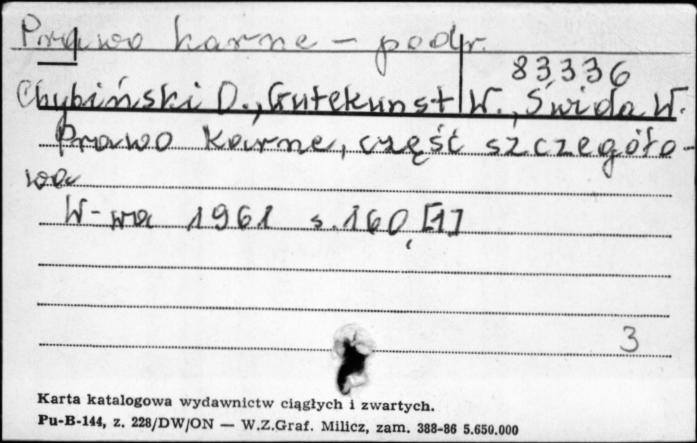 Prawo karne - podr.
83336
Chybiński O., Gutekunst W., Świda W.
Prawo karne, część szczegóło-
wa
W-wa 1961 s. 160, [1]
3
Karta katalogowa wydawnictw ciągłych i zwartych.
Pu-B-144, z. 228/DW/ON — W.Z.Graf. Milicz, zam. 388-86 5.650.000